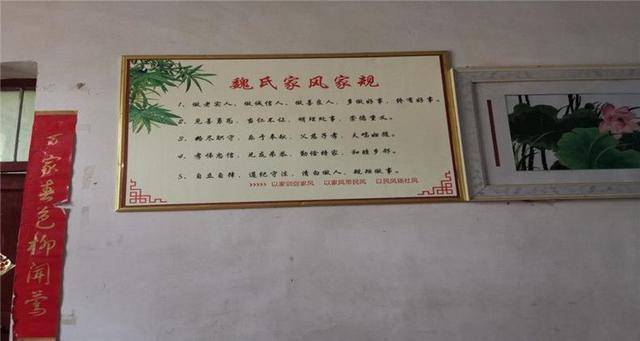 魏氏家风家规
1、做老实人、做诚信人、做善良人、多做好事、终有好事。
2、见善勇为、当仁不让、明理处事、崇德重义。
3、恪尽职守、乐于奉献、父慈子孝、夫唱妇随。
4、孝悌忠信、兄友弟恭、勤俭持家、和睦乡邻。
5、自立自律、遵纪守法、清白做人、规矩做事。
>>>>> 以家训促家风 以家风带民风 以民风扬社风
万家春色柳闻莺